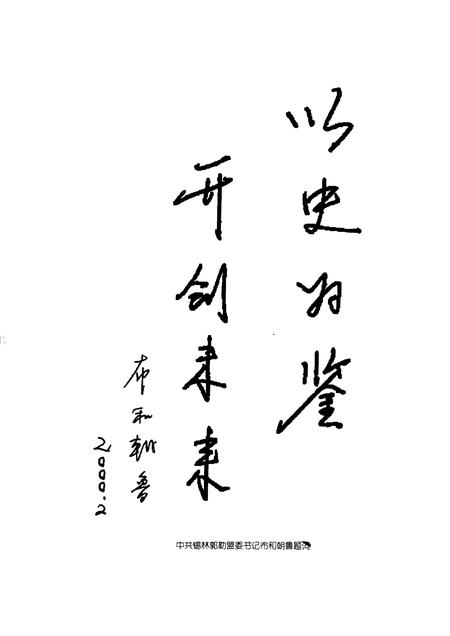 以史为鉴
开创未来
布和朝鲁
2000.2
中共锡林郭勒盟委书记布和朝鲁题词